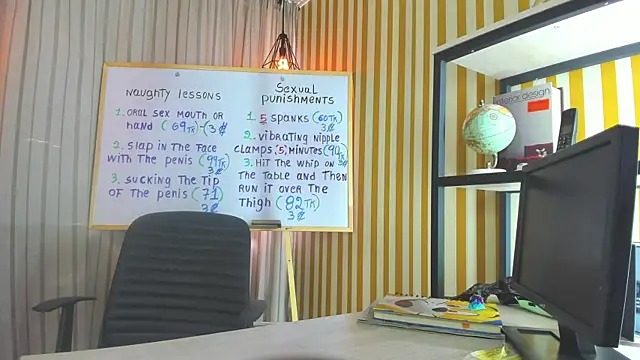 naughty lessons
1. oral sex mouth or
hand (69TK)-(3₡
2. slap in the face
with the penis (99TK)
3₡
3. sucking the tip
of the penis (71)
3₡
Sexual
punishments
1. 5 spanks (60TK)
3₡
2. vibrating nipple
clamps (5) minutes (90TK)
3₡
3. Hit the whip on
the table and then
run it over the
thigh (82TK)
3₡
interior design